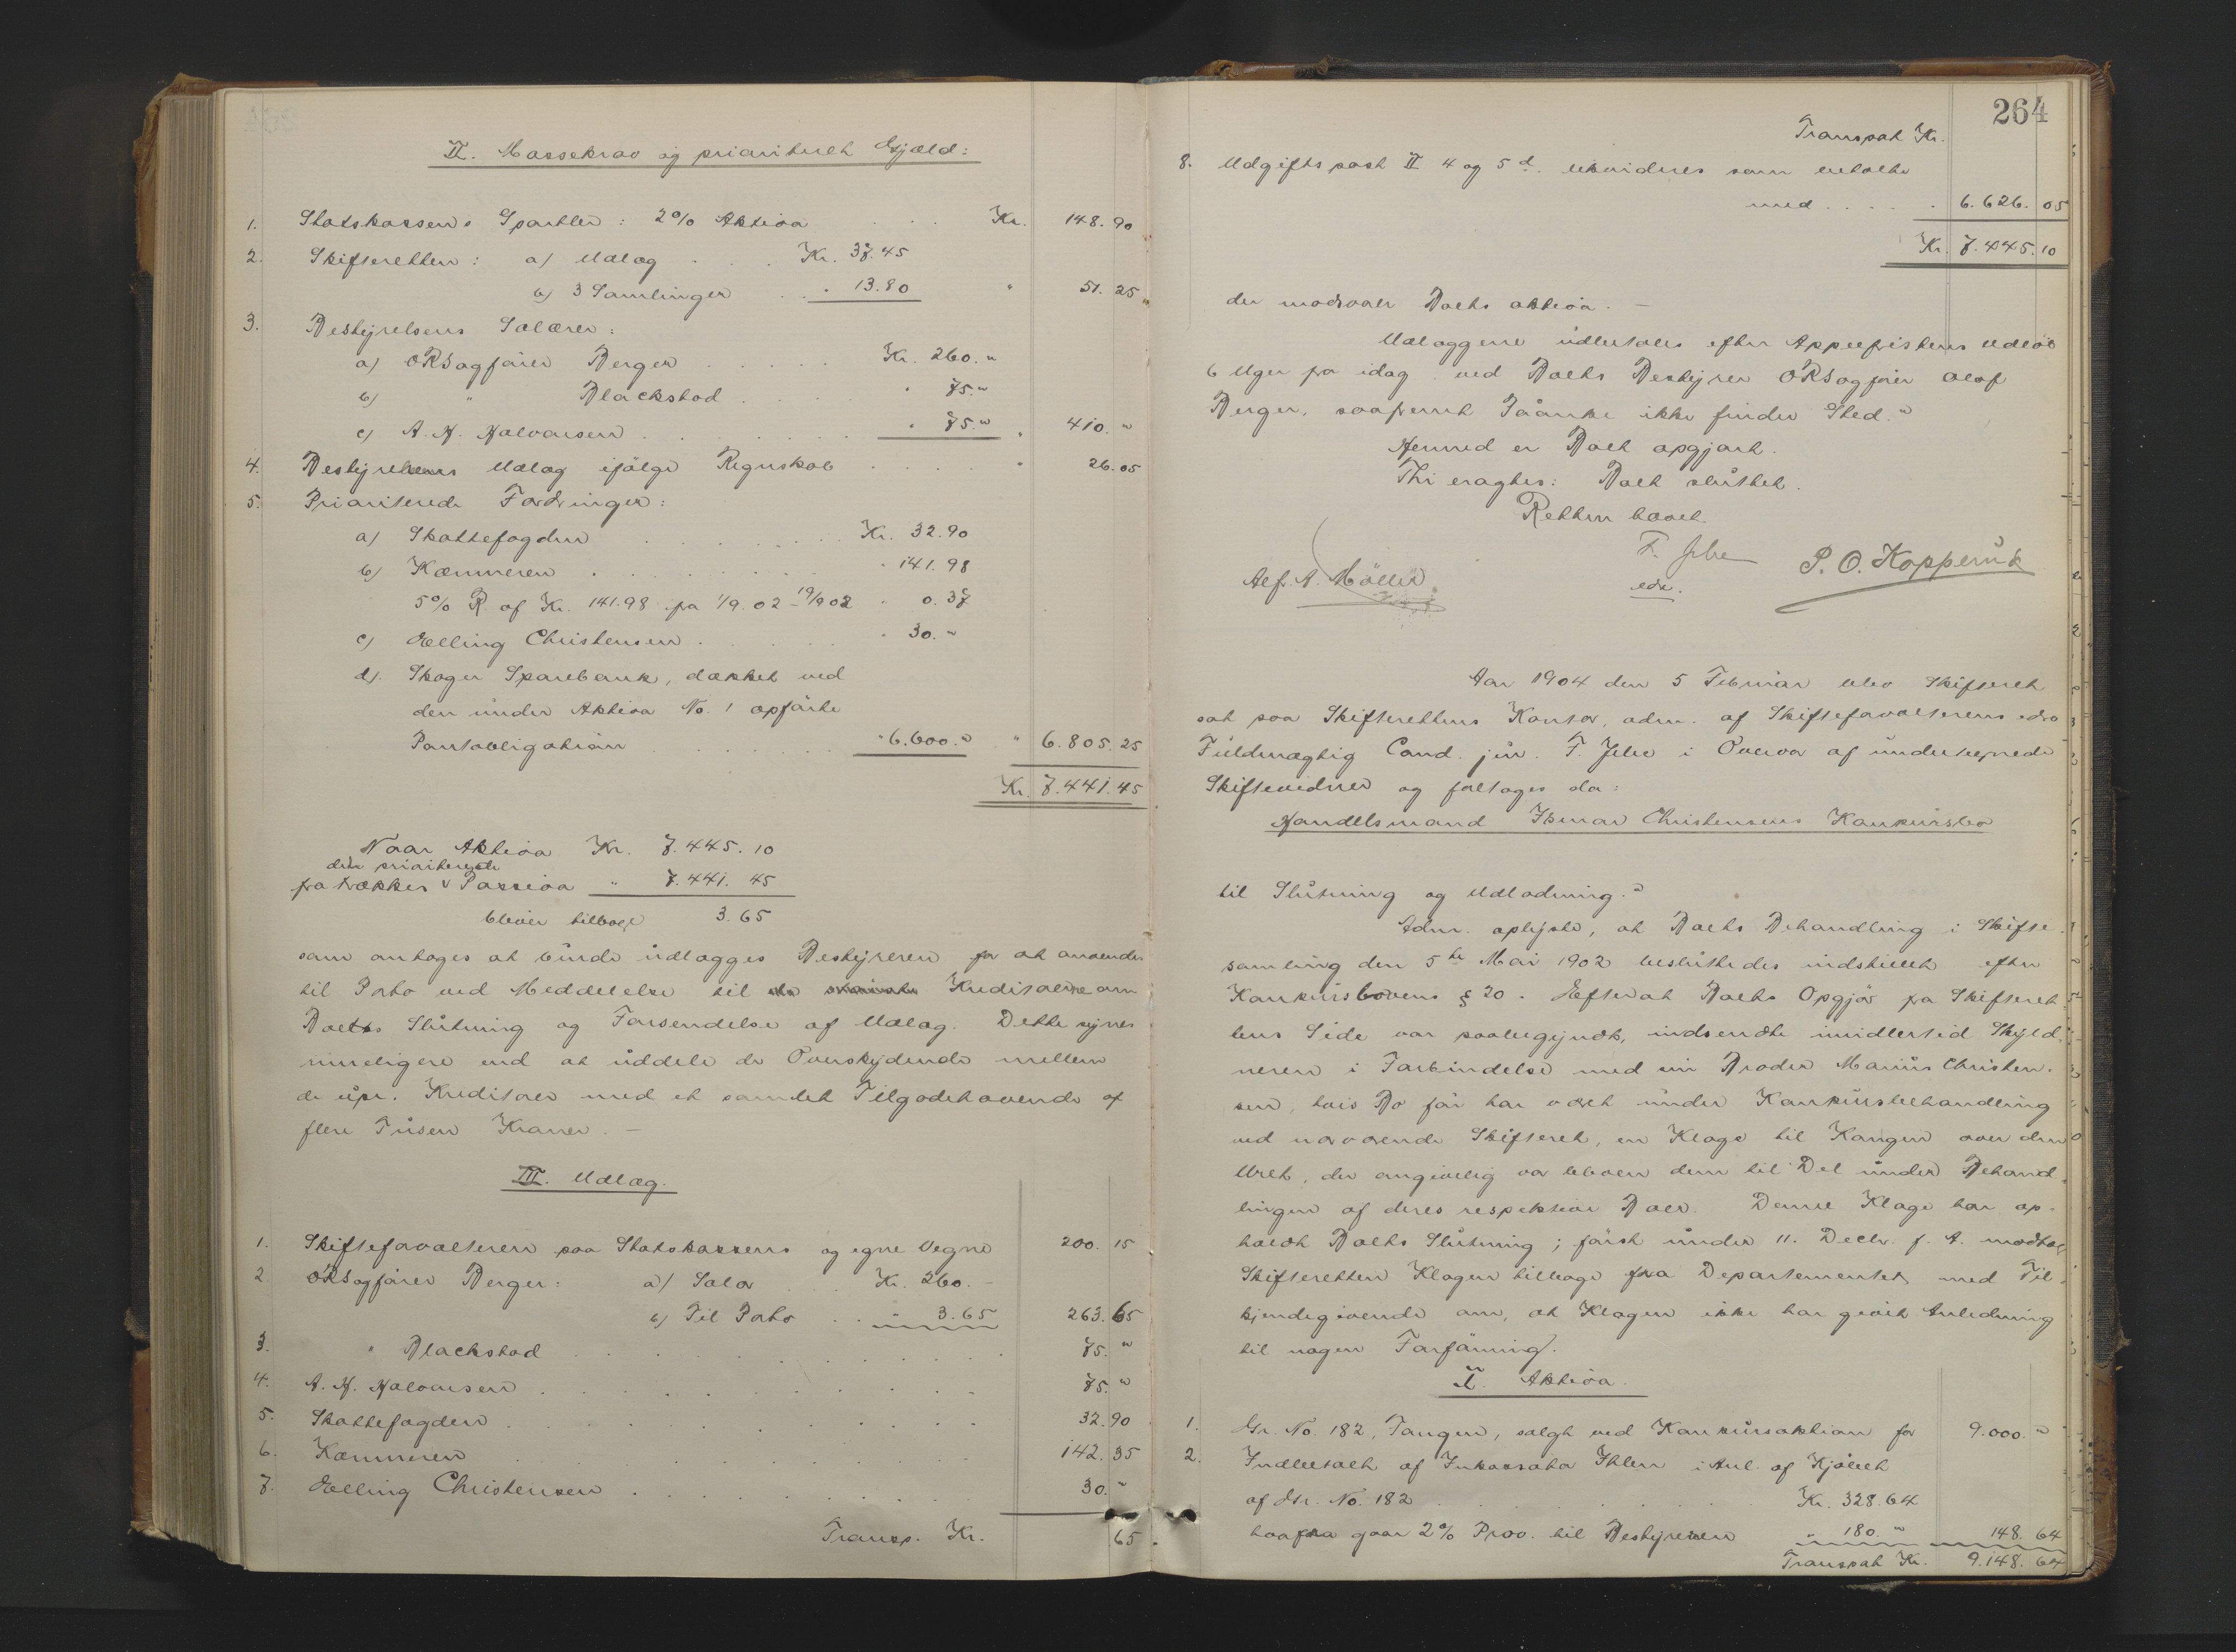 II. Massekrav og prioriteret Gjæld:
1. Statskassens Sportler: 2% Aktiva . . . Kr. 148.90
2. Skifteretten: a) Udlæg . . . Kr. 37.45
b) 3 Samlinger . . " 13.80 " 51.25
3. Bestyrelsens Salærer:
a) ORSagfører Berger . . . . . Kr. 260."
b) " Blackstad . . . . " 75."
c) A. H. Halvorsen . . . . . . . " 75." " 410."
4. Bestyrelsens Udlæg ifölge Regnskab . . . . " 26.05
5. Prioriterede Fordringer:
a) Skattefogden . . . . . . Kr. 32.90
b) Kæmneren . . . . . . " 141.98
5% R. af Kr. 141.98 fra 1/9.02 - 19/9 02 " 0.37
c) Elling Christensen . . . . . " 30."
d) Skoger Sparebank, dækket ved
den under Aktiva No. 1 opförte
Pantobligation . . . . . . . " 6.600." " 6.805.25
Kr. 7.441.45
Naar Aktiva Kr. 7.445.10
den prioriterede
fratrækkes v Passiva " 7.441.45
bliver tilbage 3.65
som antages at burde udlægges Bestyreren for at anvendes
til Porto ved Meddelelse til Kreditorerne om
Boets Slutning og Forsendelse af Udlæg. Dette synes
rimeligere end at uddele de Overskydende mellem
de upr. Kreditorer med et samlet Tilgodehavende af
flere Tusen Kroner. —
III. Udlæg.
1. Skifteforvalteren paa Statskassens og egne Vegne 200.15
2. ORSagfører Berger: a) Salær . . . Kr. 260. —
b) Til Porto . . " 3.65 263.65
3. " Blackstad . . . . . . . . . . . 75."
4. A. H. Halvorsen . . . . . . . . . . . 75."
5. Skattefogden . . . . . . . . . . . 32.90
6. Kæmneren . . . . . . . . . . . 142.35
7. Elling Christensen . . . . . . . . . 30."
Transp. Kr. 65
264
Transport Kr.
8. Udgiftspost II 4 og 5 d. likvideres som betalte
med . . . . . 6.626.05
Kr. 7.445.10
der modsvarer Boets aktiva. —
Udlæggene udbetales efter Appelfristens Udløb
6 Uger fra idag ved Boets Bestyrer ORSagfører Olaf
Berger, saafremt Paaanke ikke finder Sted."
Hermed er Boet opgjort.
Thi eragtes: Boet sluttet.
Retten hævet.
F. Jebe
eds.
P. O. Kopperud
Alf. A. Möller
Aar 1904 den 5 Februar blev Skifteret
sat paa Skifterettens Kontor, adm. af Skifteforvalterens edsv.
Fuldmægtig Cand. jur. F. Jebe i Overvær af undertegnede
Skiftevidner og foretoges da:
Handelsmand Ismar Christensens Konkursbo
til Slutning og Udlodning."
Adm. oplyste, at Boets Behandling i Skifte-
samling den 5te Mai 1902 besluttedes indstillet efter
Konkurslovens § 20. Efterat Boets Opgjör fra Skifteret-
tens Side var paabegyndt, indsendte imidlertid Skyld-
neren i Forbindelse med sin Broder Marius Christen-
sen, hvis Bo för har været under Konkursbehandling
ved nærværende Skifteret, en Klage til Kongen over den
Uret, der angivelig var bleven dem til Del under Behand-
lingen af deres respektive Boer. Denne Klage har op-
holdt Boets Slutning; först under 11. Decbr. f. A. modtog
Skifteretten Klagen tilbage fra Departementet med Til-
kjendegivende om, at Klagen ikke har givet Anledning
til nogen Forföining.
I. Aktiva.
1. Gr. No. 182, Tangen, solgt ved Konkursauktion for 9.000."
2. Indbetalt af Inkassator Ihlen i Anl. af Kjöbet
af Gr. No. 182 . . . . . . . . . Kr. 328.64
hvorfra gaar 2% Prov. til Bestyreren " 180." 148.64
Transport Kr. 9.148.64